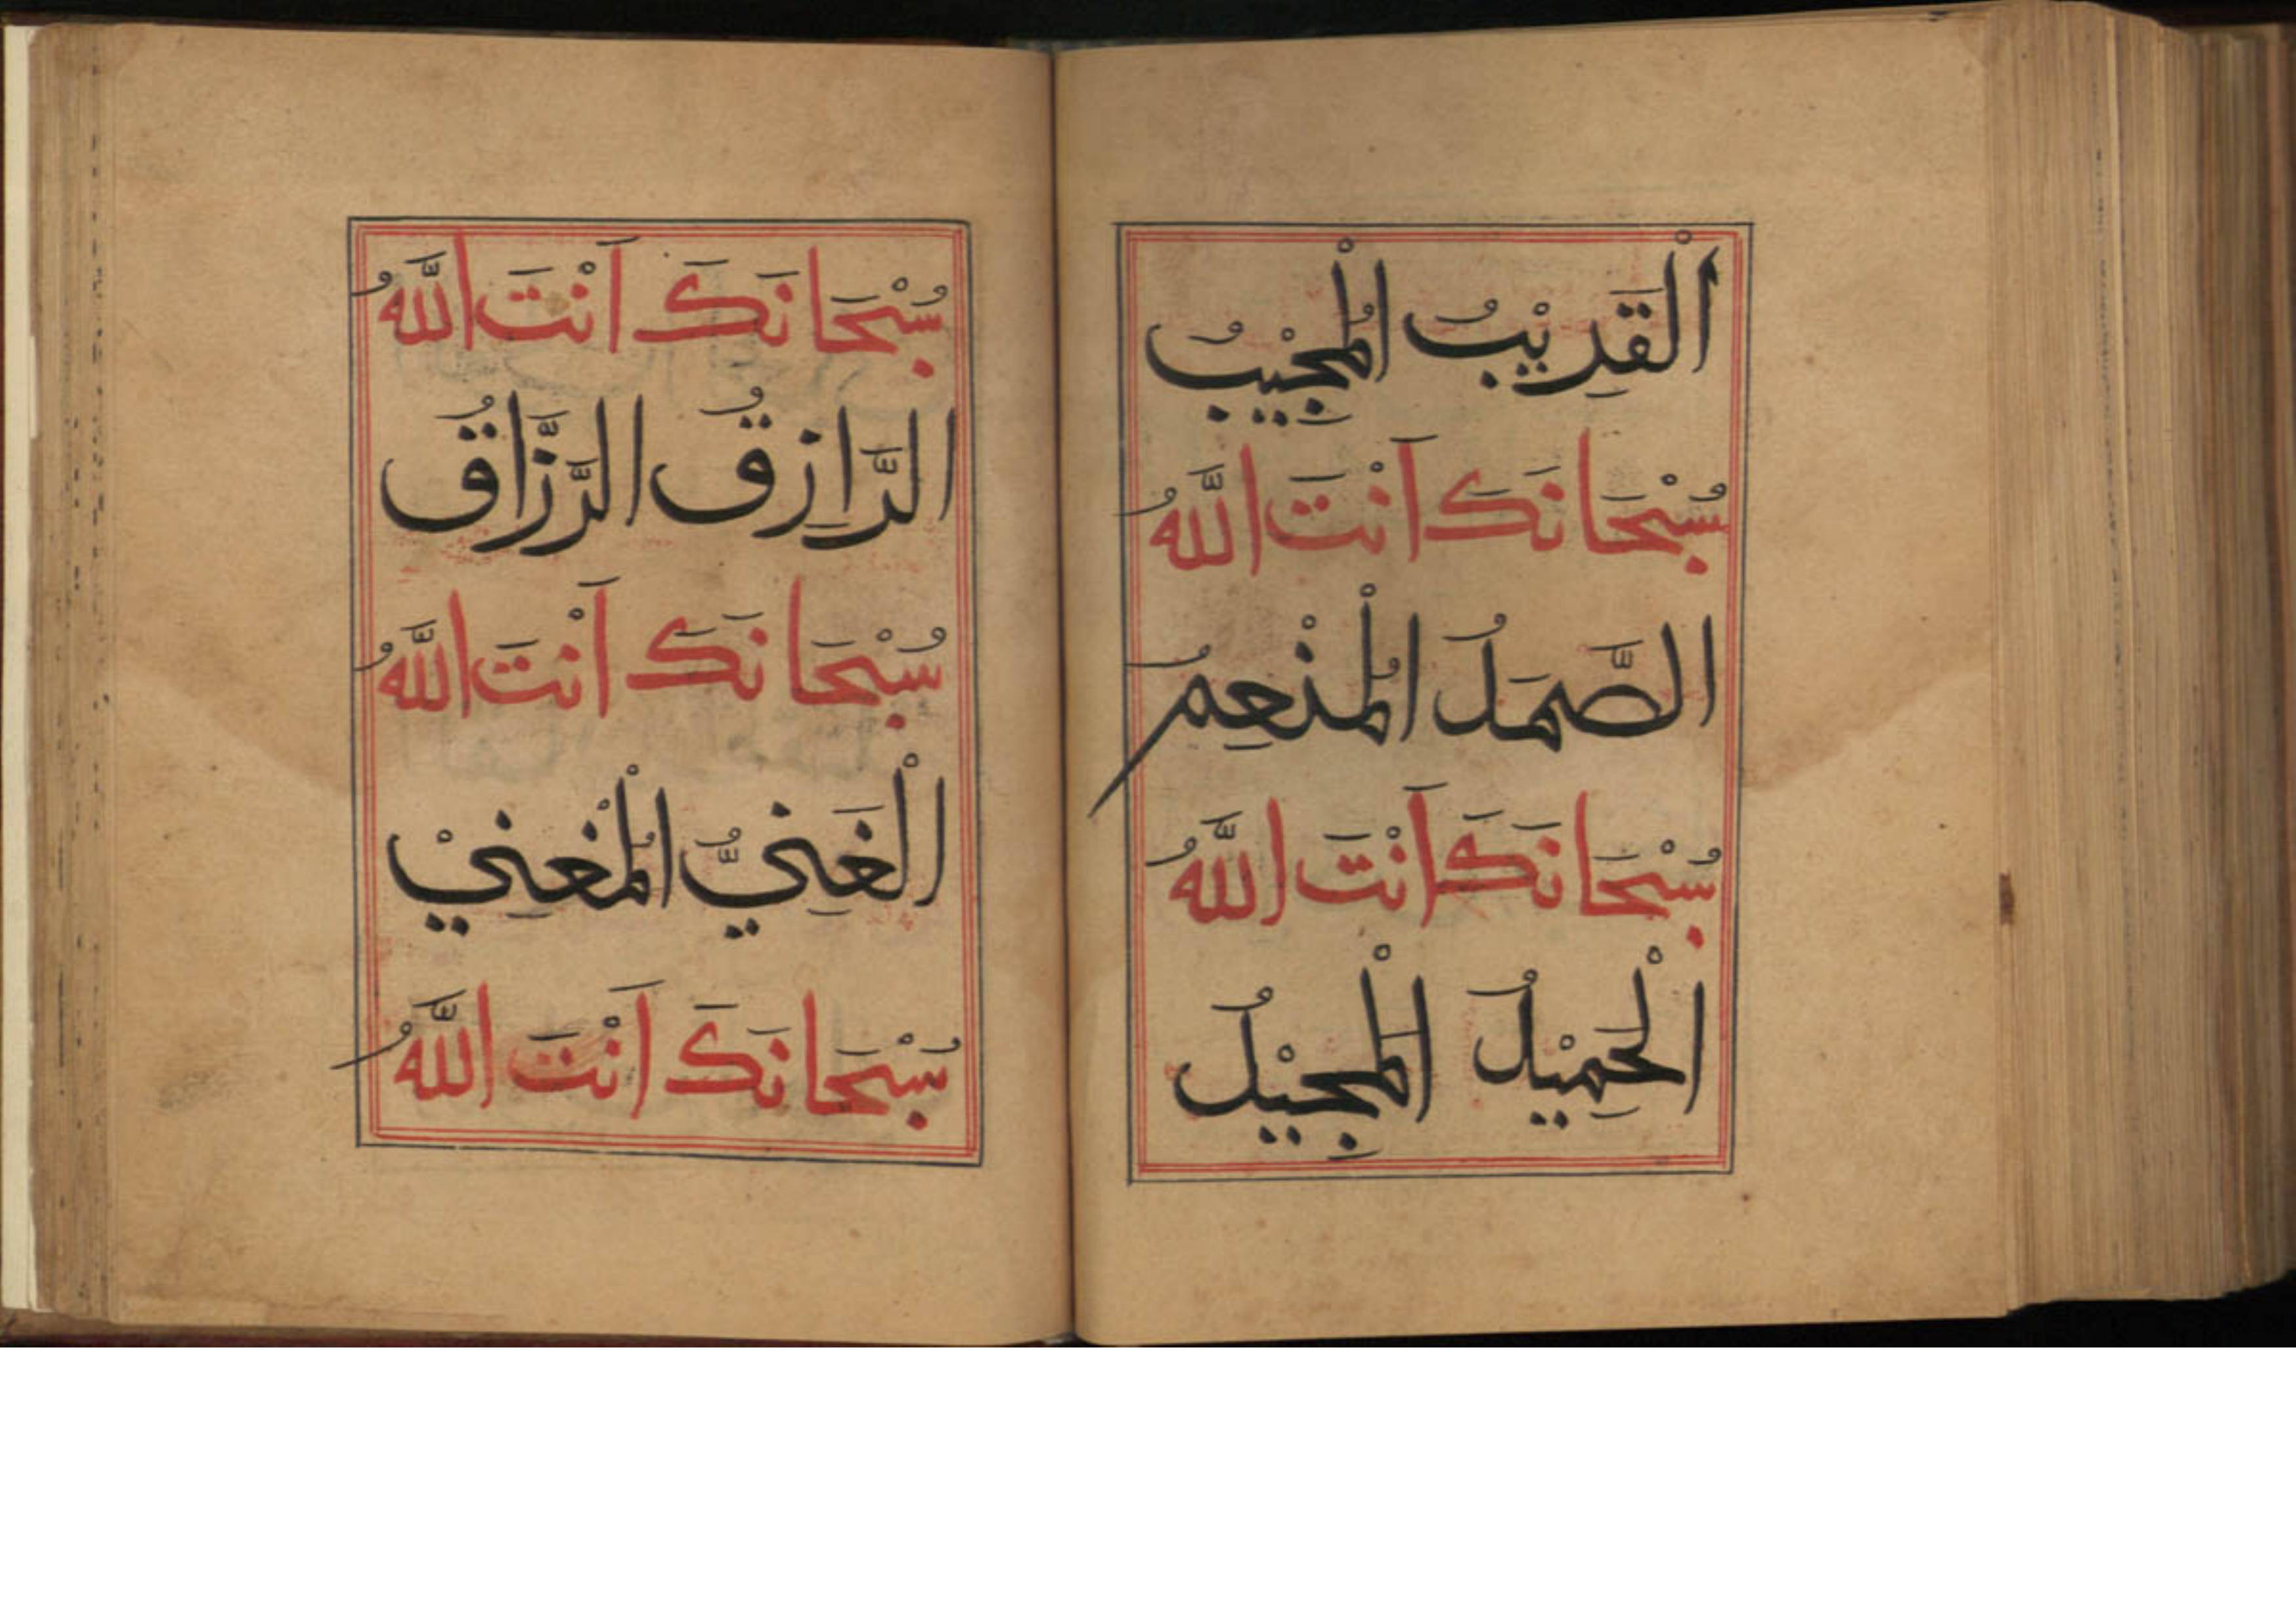 اَلْقَرِيْبُ الْمُجِيْبُ
سُبْحَانَكَ اَنْتَ اللّٰهُ
الصَّمَدُ الْمُنْعِمُ
سُبْحَانَكَ اَنْتَ اللّٰهُ
الْحَمِيْدُ الْمَجِيْدُ
سُبْحَانَكَ اَنْتَ اللّٰهُ
الرَّازِقُ الرَّزَّاقُ
سُبْحَانَكَ اَنْتَ اللّٰهُ
الْغَنِيُّ الْمُغْنِيْ
سُبْحَانَكَ اَنْتَ اللّٰهُ